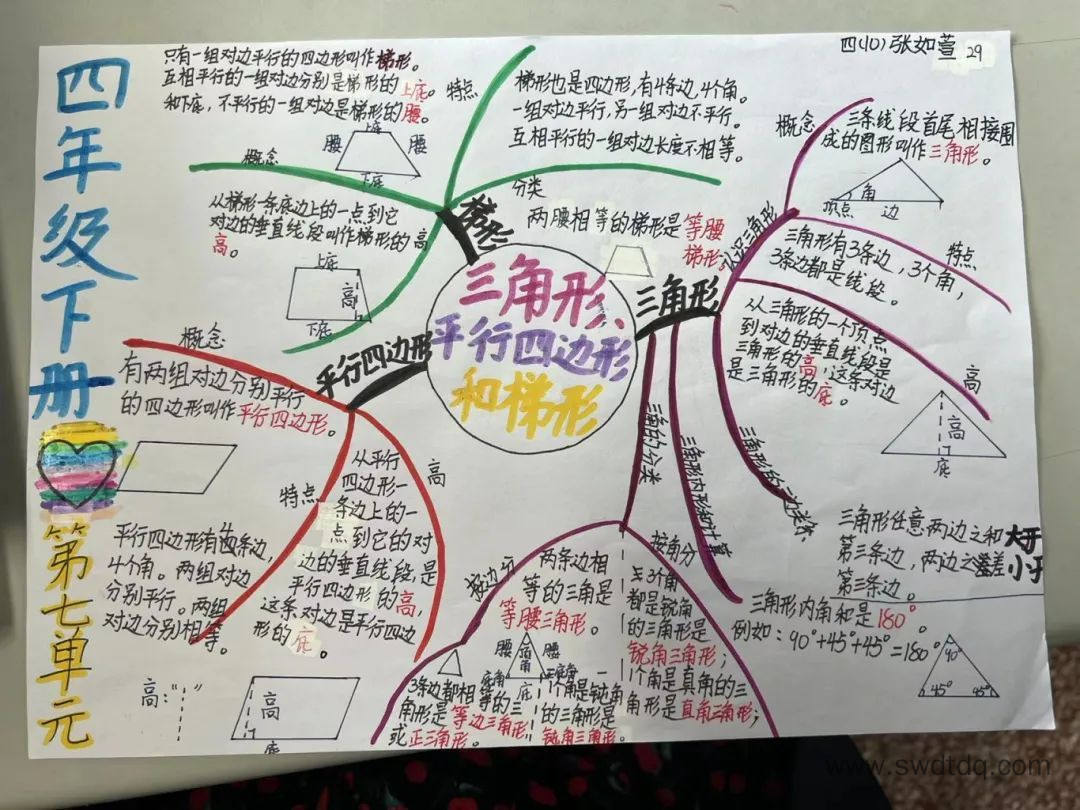 四(10)张如萱 29
四年级下册
第七单元
三角形、
平行四边形
和梯形
梯形
概念
只有一组对边平行的四边形叫作梯形。
互相平行的一组对边分别是梯形的上底
和下底，不平行的一组对边是梯形的腰。
上底
腰
腰
下底
特点
梯形也是四边形，有4条边，4个角。
一组对边平行，另一组对边不平行。
互相平行的一组对边长度不相等。
分类
两腰相等的梯形是等腰
梯形。
从梯形一条底边上的一点到它
对边的垂直线段叫作梯形的高
高。
上底
高
下底
平行四边形
概念
有两组对边分别平行
的四边形叫作平行四边形。
特点
平行四边形有4条边，
4个角。两组对边
分别平行。两组
对边分别相等。
高
从平行
四边形一
条边上的一
点到它的对
边的垂直线段，是
平行四边形的高，
这条对边是平行四边
形的底。
高：“ ”
高
底
三角形
认识三角形
概念
三条线段首尾相接围
成的图形叫作三角形。
角
顶点
边
特点
三角形有3条边，3个角，
3条边都是线段。
高
从三角形的一个顶点
到对边的垂直线段是
三角形的高，这条对边
是三角形的底。
高
底
三角形的三边关系
三角形任意两边之和大于
第三条边，两边之差小于
第三条边。
三角形内角和计算
三角形内角和是180°。
例如：90°+45°+45°=180°
90°
45°
45°
三角的分类
按边分
两条边相
等的三角是
等腰三角形。
腰
顶角
腰
底角
底角
底
3条边都相等的三
角形是等边三角形
或正三角形。
按角分
3个角
都是锐角
的三角形是
锐角三角形；
1个角是直角的三
角形是直角三角形；
一个角是钝角
的三角形是
钝角三角形。
www.swdtdq.com